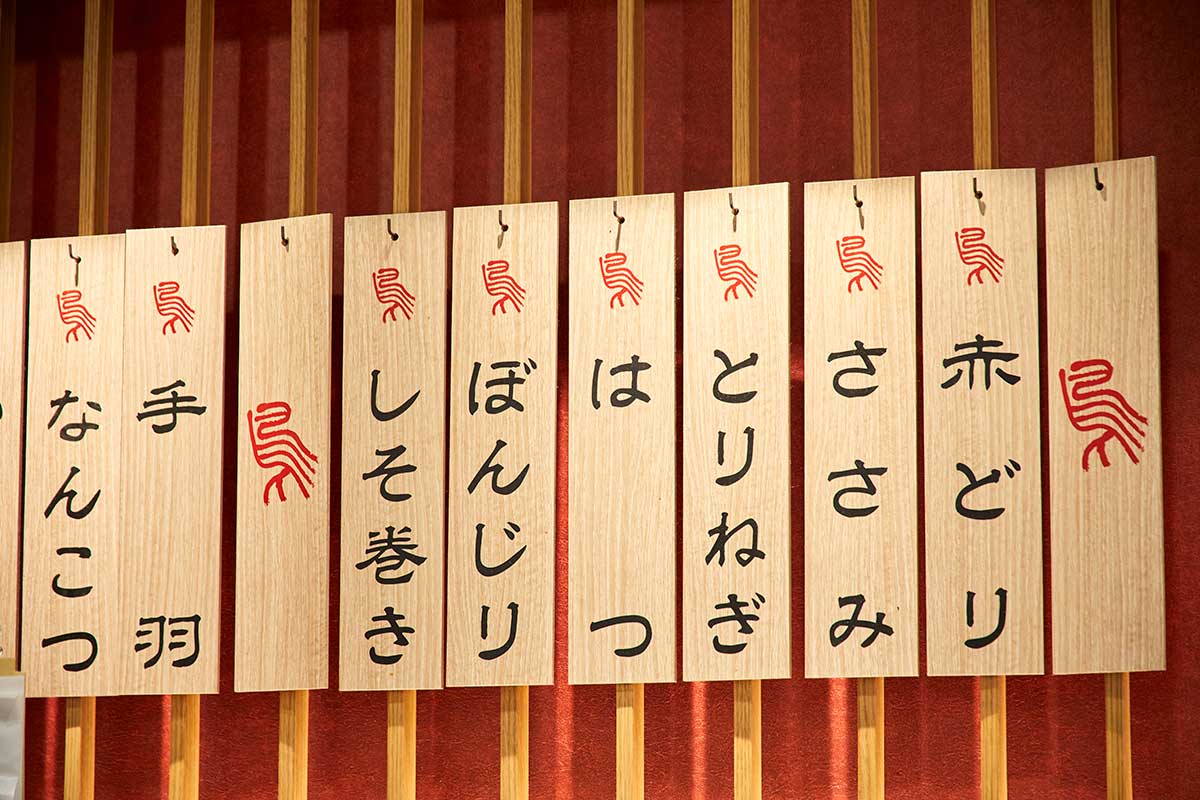 赤どり
ささみ
とりねぎ
はつ
ぼんじり
しそ巻き
手羽
なんこつ